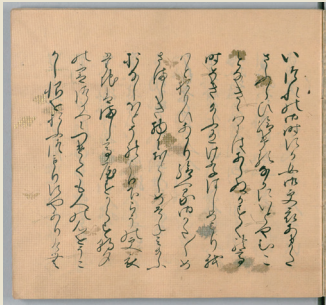 いつれの御時にか女御更衣あまた
さふらひ給けるなかにいとやむこ
となきゝはにはあらぬかすくれて
時めき給ふありけりはしめより我
はと思ひあかり給へる御かた〳〵め
さましき物におとしめそねみ給ふ
おなしほとそれより下らうの更衣
たちはましてやすからす朝夕
の宮つかへにつけても人の心をうこ
かし恨をおふつもりにやありけむ